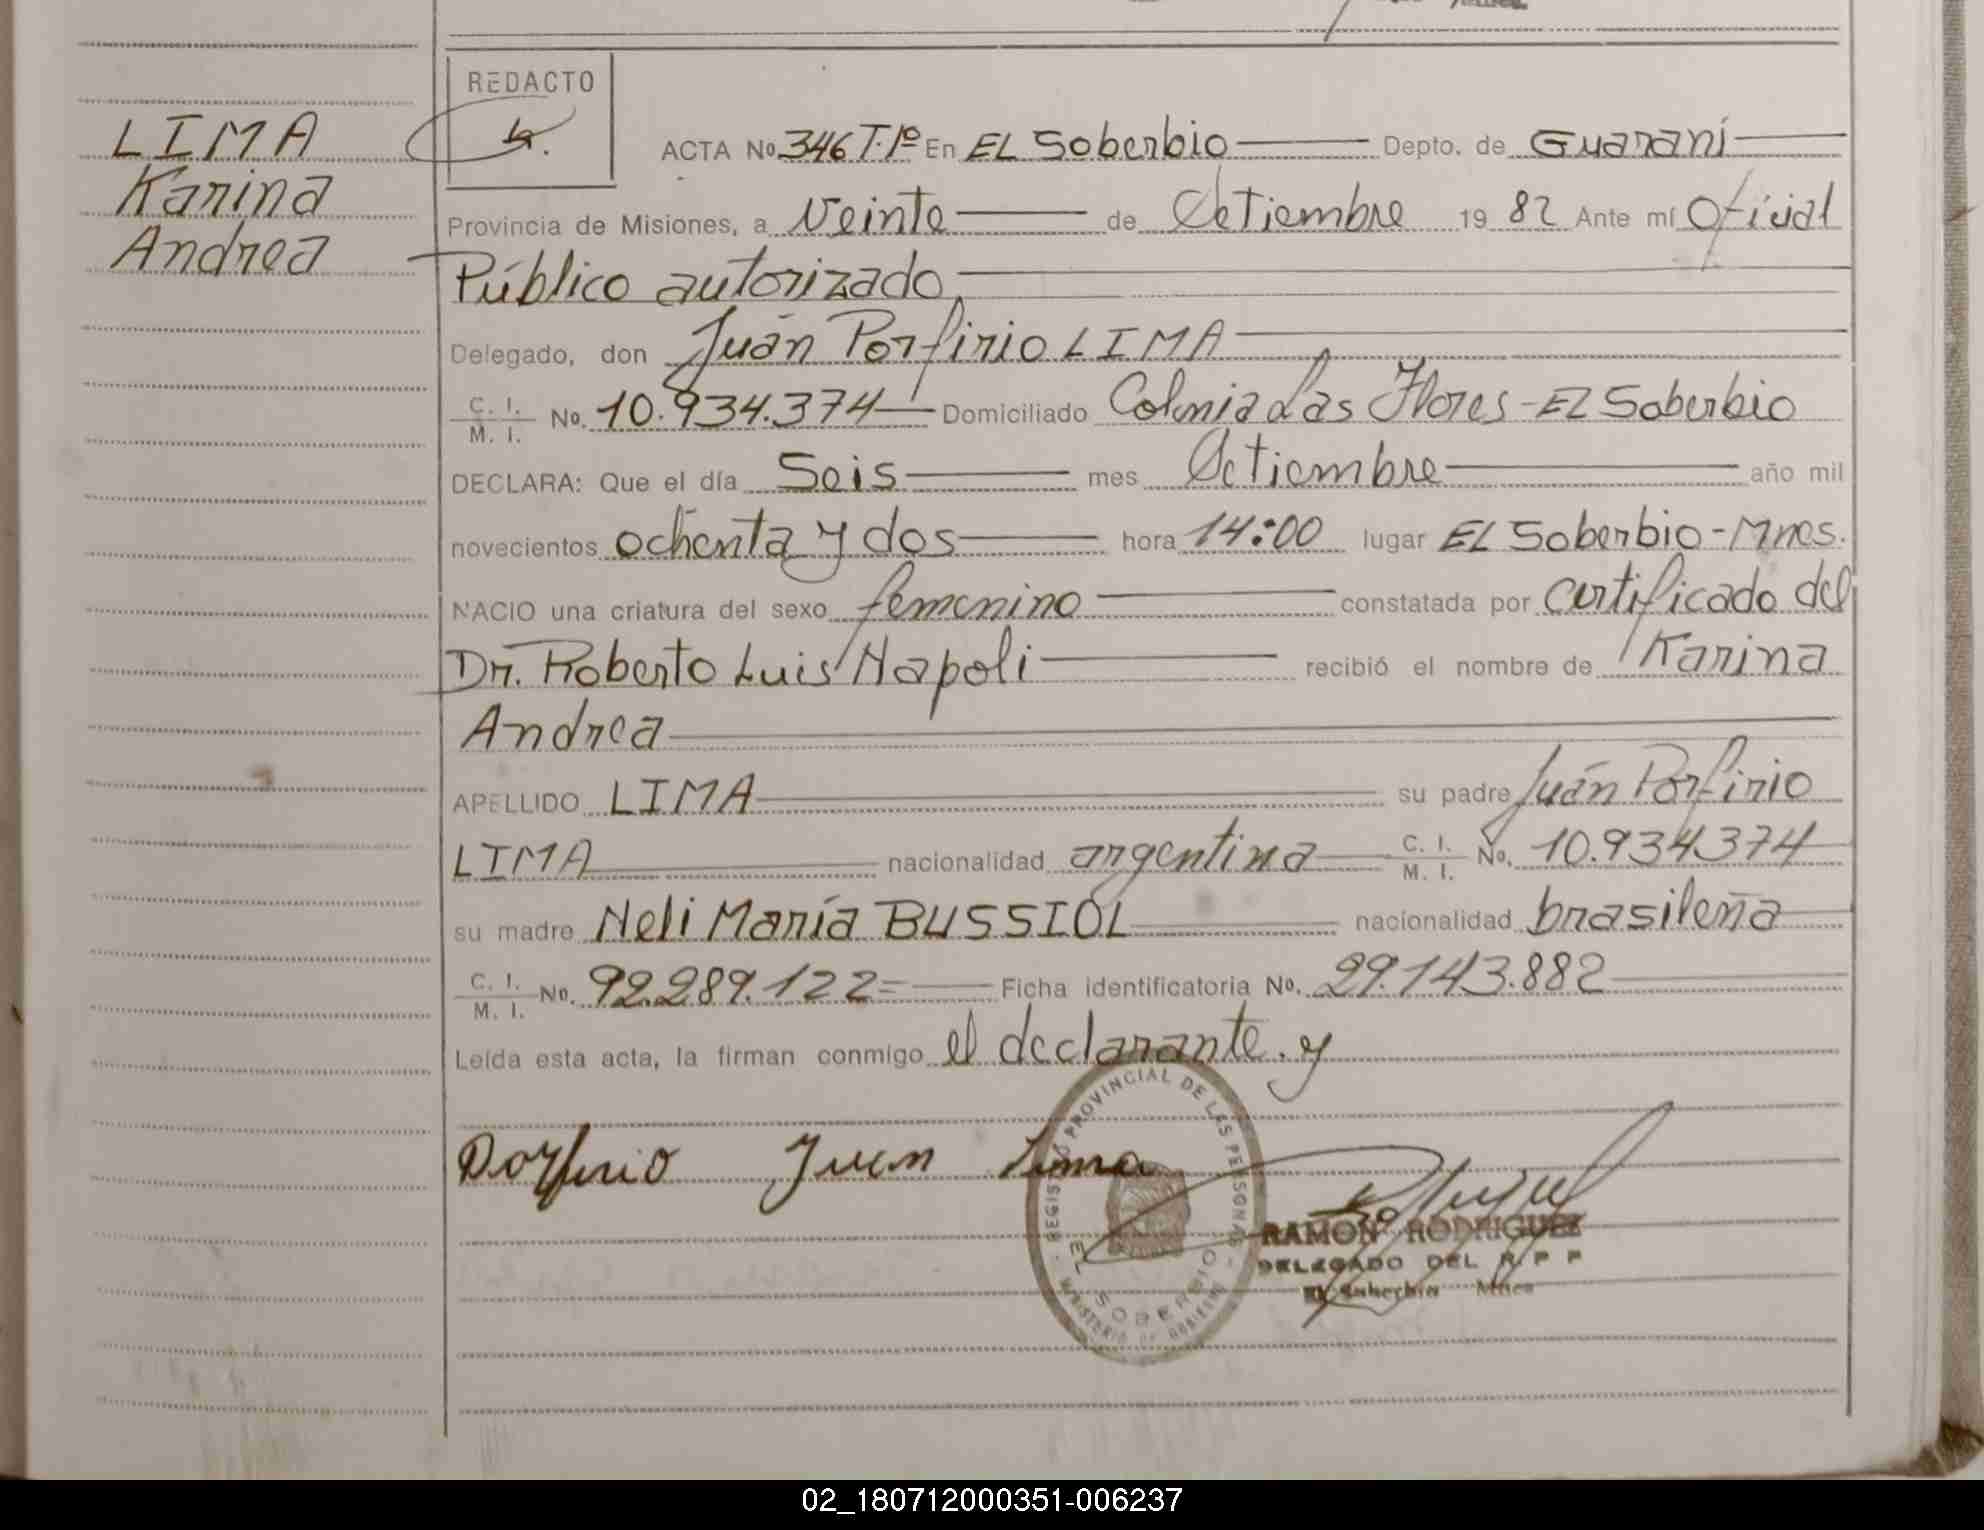 LIMA
Karina
Andrea
REDACTO
ACTA No. 346 T.1º En EL Soberbio Depto. de Guaraní
Provincia de Misiones, a veinte de Setiembre 19 82 Ante mí Oficial
Público autorizado,
Delegado, don Juán Porfirio LIMA
C. I.
M. I. No. 10.934.374 Domiciliado Colonia Las Flores - EL Soberbio
DECLARA: Que el día Seis mes Setiembre año mil
novecientos ochenta y dos hora 14:00 lugar EL Soberbio - Mnes.
NACIO una criatura del sexo femenino constatada por certificado del
Dr. Roberto Luis Napoli recibió el nombre de Karina
Andrea
APELLIDO LIMA su padre Juán Porfirio
LIMA nacionalidad argentina C. I. M. I. No. 10.934374
su madre Neli María BUSSIOL nacionalidad brasileña
C. I.
M. I. No. 92.289.122= Ficha identificatoria No. 29.143.882
Leída esta acta, la firman conmigo el declarante. y
Porfirio Juan Lima
REGISTRO PROVINCIAL DE LAS PERSONAS
EL SOBERBIO
MINISTERIO DE GOBIERNO
RAMON RODRIGUEZ
DELEGADO DEL R. P. P
El Soberbio Mnes
02_180712000351-006237